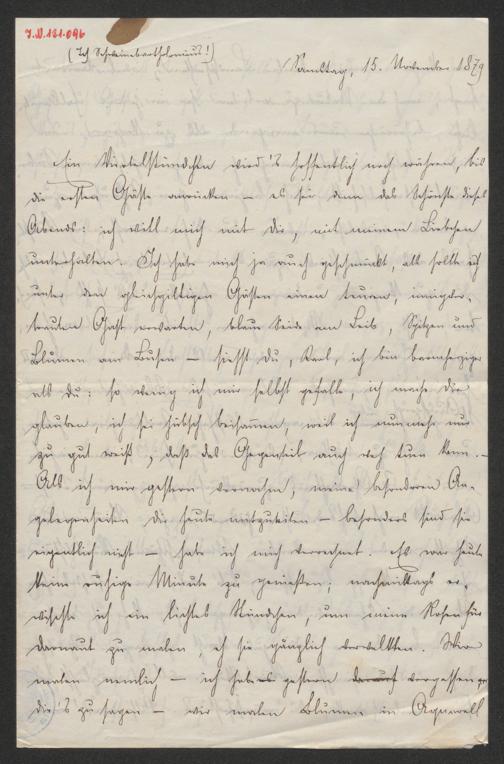 J.N. 181.096
(Ich Schweinebartholomäus!)
Samstag, 15. November 1879
Ein Viertelstündchen wird's hoffentlich noch währen, bis
die ersten Gäste anrücken – es sei denn das Schönste dieses
Abends: ich will mich mit dir, mit meinem Liebchen
unterhalten. Ich habe mich ja auch geschmückt, als sollte ich
unter den gleichgiltigen Gästen einen teuren, innigver-
trauten Gast erwarten, blau Seide am Leib, Spitzen und
Blumen am Busen – siehst du, Karl, ich bin barmherziger
als du: so wenig ich mir selbst gefalle, ich mache dir
glauben, ich sei hübsch beisammen, weil ich nunmehr nur
zu gut weiß, daß das Gegenteil auch weh tun kann. –
Als ich mir gestern vornahm, meine besonderen An-
gelegenheiten dir heute mitzuteilen – besonders sind sie
eigentlich nicht – habe ich mich verrechnet. Es war heute
keine ruhige Minute zu genießen; nachmittags er-
wischte ich ein lichtes Stündchen, um meine Rosen für
Darnaut zu malen, eh sie gänzlich verwelkten. Wir
malen nemlich – ich habe es gestern vergessen
dir's zu sagen – wir malen Blumen in Aquarell